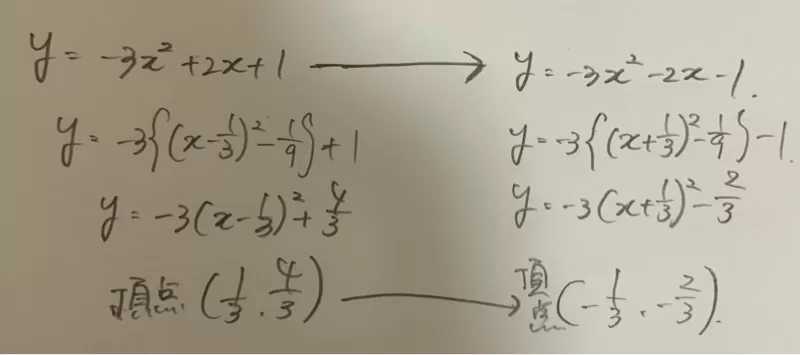 y = -3x² + 2x + 1 → y = -3x² - 2x - 1.
y = -3{(x - 1/3)² - 1/9} + 1 y = -3{(x + 1/3)² - 1/9} - 1
y = -3(x - 1/3)² + 4/3 y = -3(x + 1/3)² - 2/3
頂点 (1/3, 4/3) → 頂点 (-1/3, -2/3).